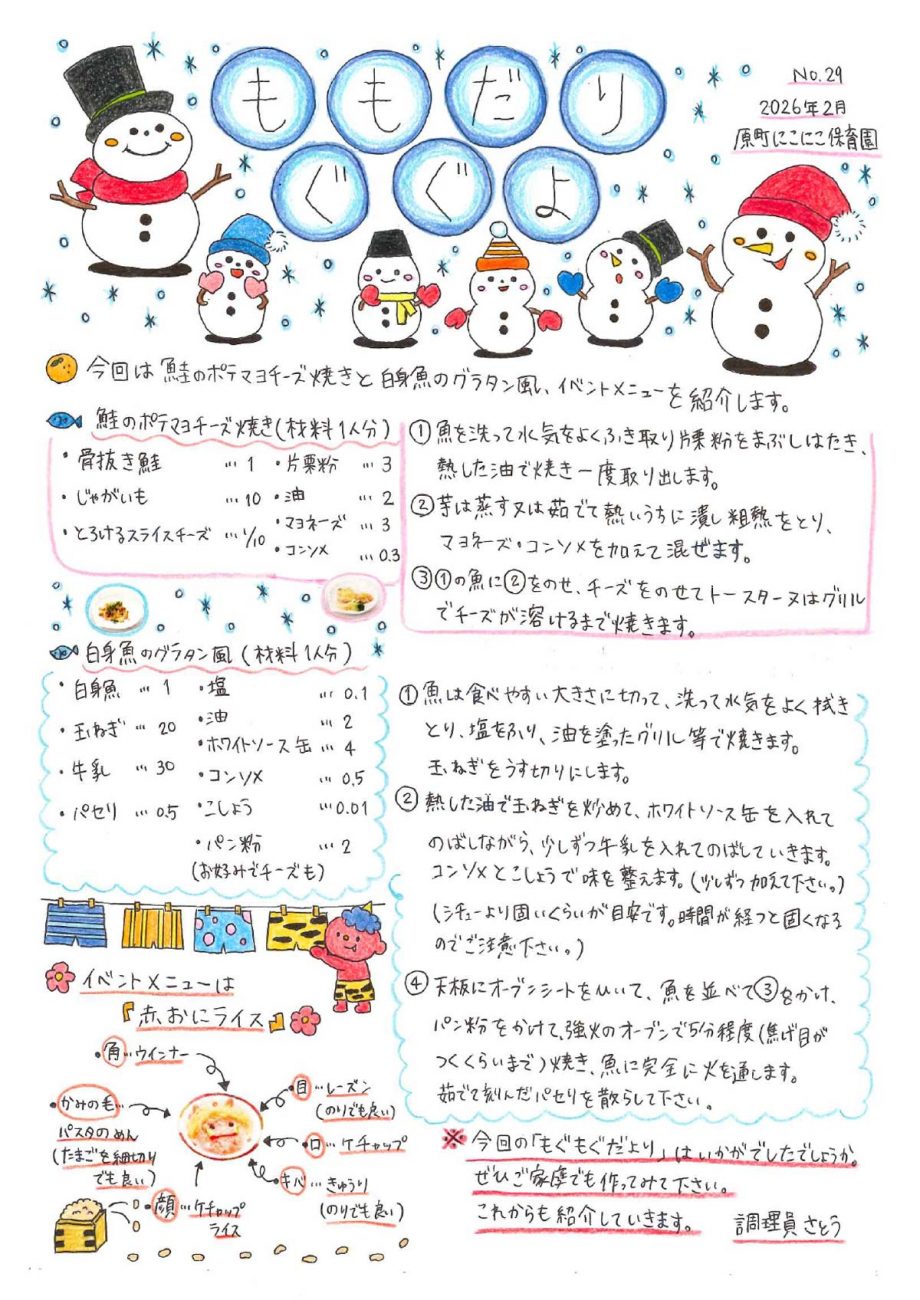 もぐもぐだより
No.29
2026年2月
原町にこにこ保育園
今回は鮭のポテマヨチーズ焼きと白身魚のグラタン風、イベントメニューを紹介します。
鮭のポテマヨチーズ焼き(材料1人分)
・骨抜き鮭 … 1
・じゃがいも … 10
・とろけるスライスチーズ … 1/10
・片栗粉 … 3
・油 … 2
・マヨネーズ … 3
・コンソメ … 0.3
①魚を洗って水気をよくふき取り片栗粉をまぶしはたき、
熱した油で焼き一度取り出します。
②芋は蒸す又は茹でて熱いうちに潰し粗熱をとり、
マヨネーズ・コンソメを加えて混ぜます。
③①の魚に②をのせ、チーズをのせてトースター又はグリル
でチーズが溶けるまで焼きます。
白身魚のグラタン風(材料1人分)
・白身魚 … 1
・玉ねぎ … 20
・牛乳 … 30
・パセリ … 0.5
・塩 … 0.1
・油 … 2
・ホワイトソース缶 … 4
・コンソメ … 0.5
・こしょう … 0.01
・パン粉 … 2
(お好みでチーズも)
①魚は食べやすい大きさに切って、洗って水気をよく拭き
とり、塩をふり、油を塗ったグリル等で焼きます。
玉ねぎをうす切りにします。
②熱した油で玉ねぎを炒めて、ホワイトソース缶を入れて
のばしながら、少しずつ牛乳を入れてのばしていきます。
コンソメとこしょうで味を整えます。(少しずつ加えて下さい。)
(シチューより固いくらいが目安です。時間が経つと固くなる
のでご注意下さい。)
④天板にオーブンシートをひいて、魚を並べて③をかけ、
パン粉をかけて、強火のオーブンで5分程度(焦げ目が
つくくらいまで)焼き、魚に完全に火を通します。
茹でて刻んだパセリを散らして下さい。
イベントメニューは
『赤おにライス』
・角…ウインナー
・かみの毛…
パスタのめん
(たまごを細切り
でも良い)
・顔…ケチャップ
ライス
・目…レーズン
(のりでも良い)
・口…ケチャップ
・キバ…きゅうり
(のりでも良い)
※今回の「もぐもぐだより」はいかがでしたでしょうか。
ぜひご家庭でも作ってみて下さい。
これからも紹介していきます。
調理員さとう